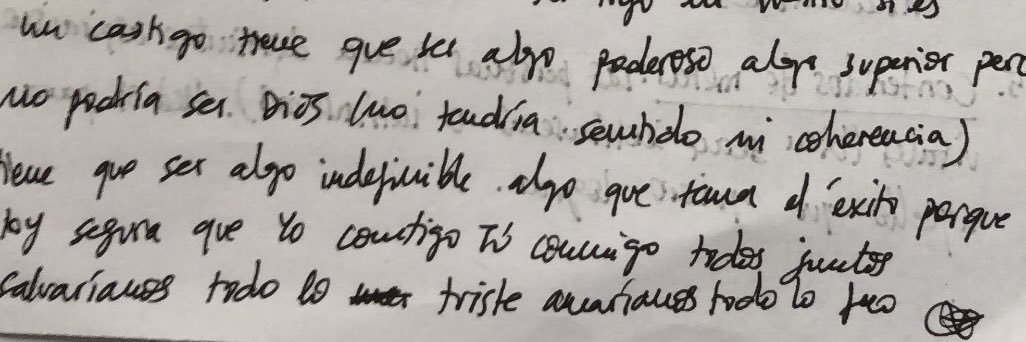 un castigo tiene que ser algo poderoso algo superior pero
no podría ser Dios (no tendría sentido ni coherencia)
tiene que ser algo indefinible. algo que tema el éxito porque
soy segura que Yo contigo Tú conmigo todos juntos
salvaríamos todo lo triste amaríamos todo lo feo